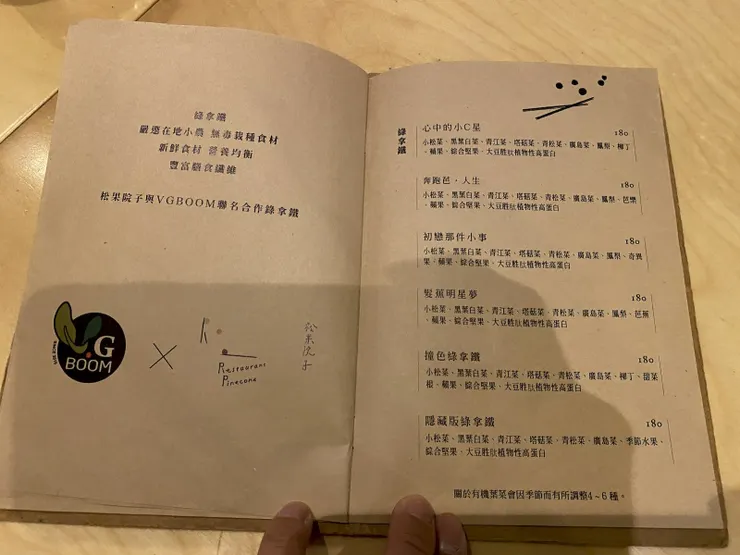 綠拿鐵
嚴選在地小農 無毒栽種食材
新鮮食材 營養均衡
豐富膳食纖維
松果院子與VGBOOM聯名合作綠拿鐵
VG
BOOM
Restaurant
Pinecone
松果院子
綠拿鐵
心中的小C星 180
小松菜、黑葉白菜、青江菜、塔菇菜、青松菜、廣島菜、鳳梨、柳丁
、蘋果、綜合堅果、大豆胜肽植物性高蛋白
奔跑芭、人生 180
小松菜、黑葉白菜、青江菜、塔菇菜、青松菜、廣島菜、鳳梨、芭樂
、蘋果、綜合堅果、大豆胜肽植物性高蛋白
初戀那件小事 180
小松菜、黑葉白菜、青江菜、塔菇菜、青松菜、廣島菜、鳳梨、奇異
果、蘋果、綜合堅果、大豆胜肽植物性高蛋白
髮蕉明星夢 180
小松菜、黑葉白菜、青江菜、塔菇菜、青松菜、廣島菜、鳳梨、芭蕉
、蘋果、綜合堅果、大豆胜肽植物性高蛋白
撞色綠拿鐵 180
小松菜、黑葉白菜、青江菜、塔菇菜、青松菜、廣島菜、柳丁、甜菜
根、蘋果、綜合堅果、大豆胜肽植物性高蛋白
隱藏版綠拿鐵 180
小松菜、黑葉白菜、青江菜、塔菇菜、青松菜、廣島菜、季節水果、
綜合堅果、大豆胜肽植物性高蛋白
關於有機葉菜會因季節而有所調整4~6種。